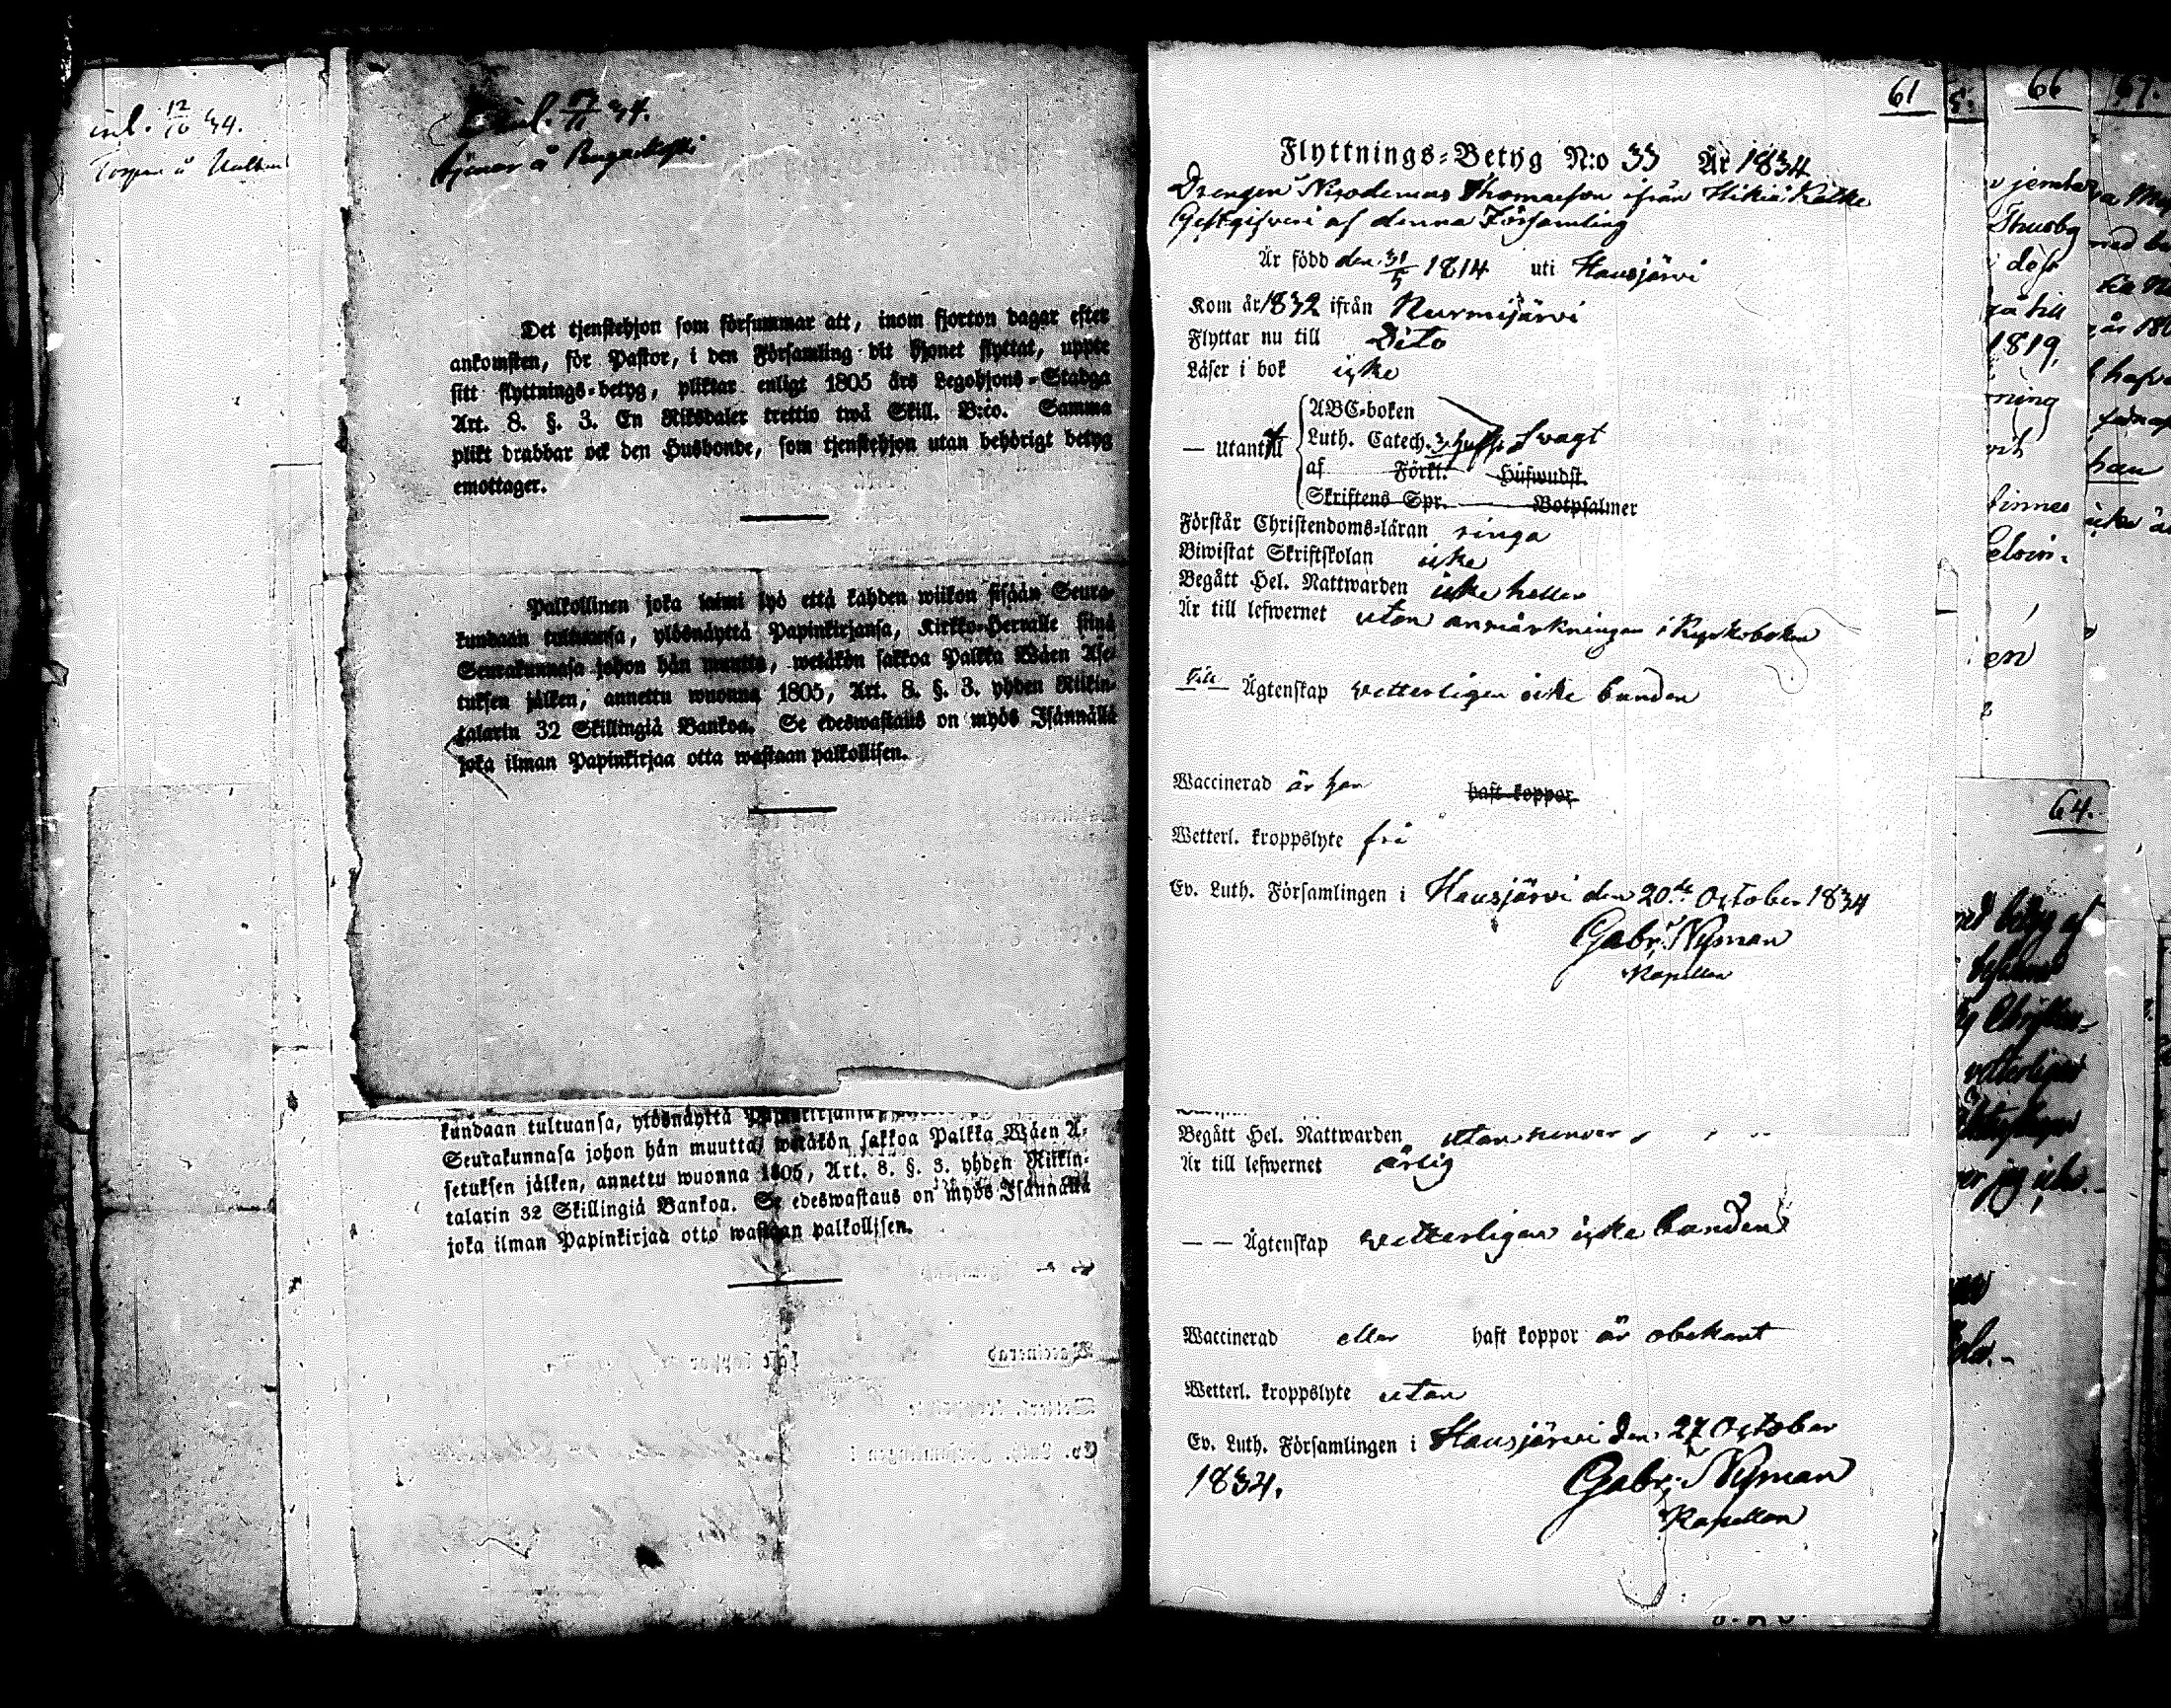 inl. 12/10 34.
Torpare å
inl. 34.
tjenar å
Det tjenstehjon som försummar att, inom fjorton dagar efter
ankomsten, för Pastor, i den Församling dit hjonet flyttat, uppte
sitt flyttnings-betyg, pliktar enligt 1805 års Legohjons-Stadga
Art. 8. §. 3. En Riksdaler trettio twå Skill. B:co. Samma
plikt drabbar ock den Husbonde, som tjenstehjon utan behörigt betyg
emottager.
Palkollinen joka laimi lyö että kahden wiikon sisään Seura-
kundaan tultuansa, ylösnäyttä Papinkirjansa, Kirkko-Herralle siinä
Seurakunnasa johon hän muutta, wetäkön sakkoa Palkka Wäen Ase-
tuksen jälken, annettu wuonna 1805, Art. 8. §. 3. yhden Riikin-
talarin 32 Skillingiä Bankoa. Se edeswastaus on myös Isännällä
joka ilman Papinkirjaa otta wastaan palkollisen.
kundaan tultuansa, ylösnäyttä Papinkirjansa,
Seurakunnasa johon hän muutta, wetäkön sakkoa Palkka Wäen A-
setuksen jälken, annettu wuonna 1805, Art. 8. §. 3. yhden Riikin-
talarin 32 Skillingiä Bankoa. Se edeswastaus on myös Isännällä
joka ilman Papinkirjaa otto wastaan palkollisen.
61
Flyttnings-Betyg N:o 33 År 1834
Drengen Nicodemus Thomasson ifrån Hikiä Kalke
Gestgifveri af denna Församling
Är född den 31/5 1814 uti Hausjärvi
Kom år 1832 ifrån Nurmijärvi
Flyttar nu till Dito
Läser i bok icke
— utantill
ABC-boken
Luth. Catech. 3 svagt
af Förkl. Hufwudst.
Skriftens Spr. Botpsalmer
Förstår Christendoms-läran ringa
Biwistat Skriftskolan icke
Begått Hel. Nattwarden icke heller
Är till lefwernet utan anmärkningar i Kyrkoboken
till Ägtenskap vetterligen icke bunden
Waccinerad är han haft koppor
Wetterl. kroppslyte fri
Ev. Luth. Församlingen i Hausjärvi den 20:de October 1834
Gabr. Nyman
Kapellan
Begått Hel. Nattwarden utan
Är till lefwernet ärlig
— — Ägtenskap vetterligen icke bunden
Waccinerad eller haft koppor är obekant
Wetterl. kroppslyte utan
Ev. Luth. Församlingen i Hausjärvi den 27 October
1834.
Gabr. Nyman
Kapellan
66
Thusby
1819,
ning
finnes
en
64.
vetterligen
han